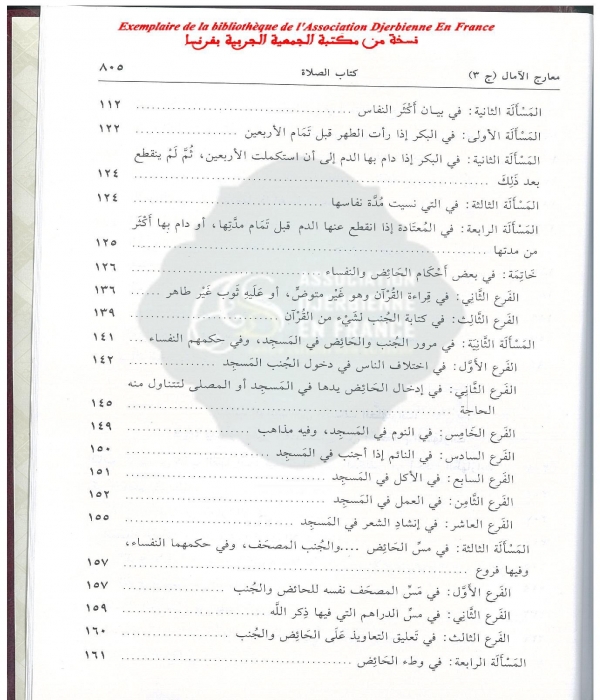 Exemplaire de la bibliothèque de l'Association Djerbienne En France
نسخة من مكتبة الجمعية الجربية بفرنسا
معارج الآمال (ج ٣) كتاب الصلاة ٨٠٥
المَسْأَلَة الثانية: في بيـان أَكْثَر النفاس ١١٢
المَسْأَلَة الأولى: في البكر إذا رأت الطهر قبل تَمَام الأربعين ١٢٢
المَسْأَلَة الثانية: في البكر إذا دام بها الدم إلى أن استكملت الأربعين، ثُمَّ لَمْ ينقطع
بعد ذَلِكَ ١٢٤
المَسْأَلَة الثالثة: في التي نسيت مُدَّة نفاسها ١٢٤
المَسْأَلَة الرابعة: في المُعتَادة إذا انقطع عنها الدم قبل تَمَام مدّتِها، أو دام بِها أَكْثَر
من مدتها ١٢٥
خَاتِمَة: في بعض أَحْكَام الحَائِض والنفساء ١٢٦
الفَرع الثَّانِي: في قِراءة القُرْآن وهو غَيْر متوضِّئ، أو عَلَيهِ ثَوب غَيْر طاهر ١٣٦
الفَرع الثَّالِث: في كتابة الجُنب لشَيْء من القُرْآن ١٣٩
المَسْأَلَة الثَّانِيَة: في مرور الجُنب والحَائِض في المَسجِد، وفي حكمهم النفساء ١٤١
الفَرع الأَوَّل: في اختلاف الناس في دخول الجُنب المَسجد ١٤٢
الفَرع الثَّانِي: في إدخال الحَائِض يدها في المَسجِد أو المصلى لتتناول منه
الحاجة ١٤٥
الفَرع الخَامِس: في النوم في المَسجِد، وفيه مذاهب ١٤٩
الفَرع السادس: في النائم إذا أجنب في المَسجِد ١٥٠
الفَرع السابع: في الأكل في المَسجِد ١٥١
الفَرع الثَّامِن: في العمل في المَسجِد ١٥٢
الفَرع العاشر: في إنشادِ الشعر في المَسجِد ١٥٥
المَسْأَلَة الثالثة: في مسِّ الحَائِض ....والجُنب المصحَف، وفي حكمهما النفساء،
وفيها فروع ١٥٧
الفَرع الأَوَّل: في مَسِّ المصحَف نفسه للحائض والجُنب ١٥٧
الفَرع الثَّانِي: في مسِّ الدراهم التي فيها ذِكر اللَّه ١٥٩
الفَرع الثالث: في تَعليق التعاويذ عَلَى الحَائِض والجُنب ١٦٠
المَسْأَلَة الرابعة: في وطء الحَائِض ١٦١
ASSOCIATION
DJERBIENNE
EN FRANCE